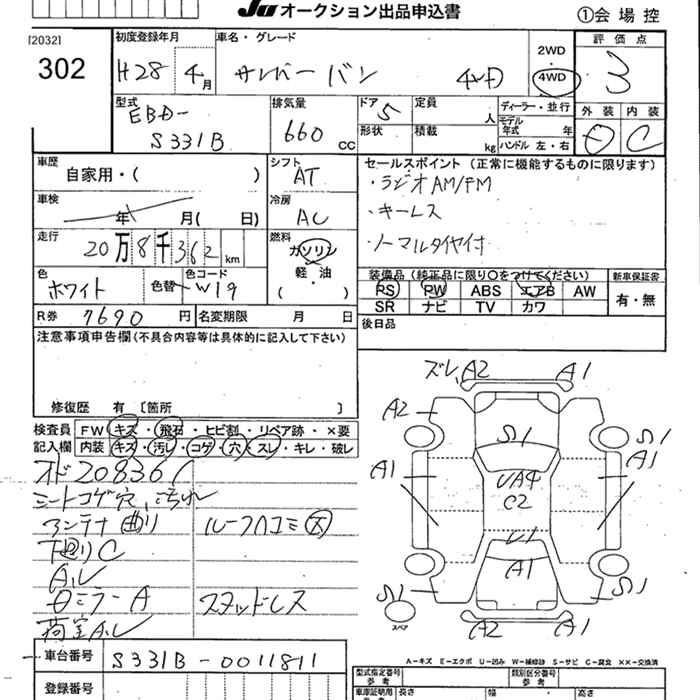 JU オークション出品申込書
①会場控
[2032]
302
初度登録年月
H28 4月
車名・グレード
サンバー バン 4WD
2WD
4WD
評価点
3
型式
EBD-
S331B
排気量
660 CC
ドア
5
形状
定員
人
積載
kg
ディーラー・並行
モデル年式 年
ハンドル 左・右
外装 内装
D C
車歴
自家用・( )
シフト
AT
セールスポイント(正常に機能するものに限ります)
・ラジオ AM/FM
・キーレス
・ノーマルタイヤ付
車検
年 月( 日)
冷房
AC
走行
20万8千362km
燃料
ガソリン
軽・油
( )
色
ホワイト
色替
色コード
W19
装備品(純正品に限り○をつけてください)
PS PW ABS エアB AW
SR ナビ TV カワ
新車保証書
有・無
R券 7690円
名変期限 月 日
後日品
注意事項申告欄(不具合内容等は具体的に記入して下さい)
修復歴 有〔箇所 〕
検査員記入欄
FW キズ・飛石・ヒビ割・リペア跡・×要
内装 キズ・汚レ・コゲ・穴・スレ・キレ・破レ
オド208361
シートコゲ穴、汚れ
アンテナ曲り ルーフ凹コミ大
下廻りC
A,ル
ミラーA スタッドレス
荷室A,ル
ズレ,A2 A1
A2
S1
S1
A1
A1
UA4
C2
U1
A1
S1
S1
スペア
A2 A1
車台番号 S331B-0011811
登録番号
A-キズ E-エクボ U-凹み W-補修跡 S-サビ C-腐食 XX-交換済
型式指定番号
参考
類別区分番号
参考
車庫証明用
長さ 幅 高さ